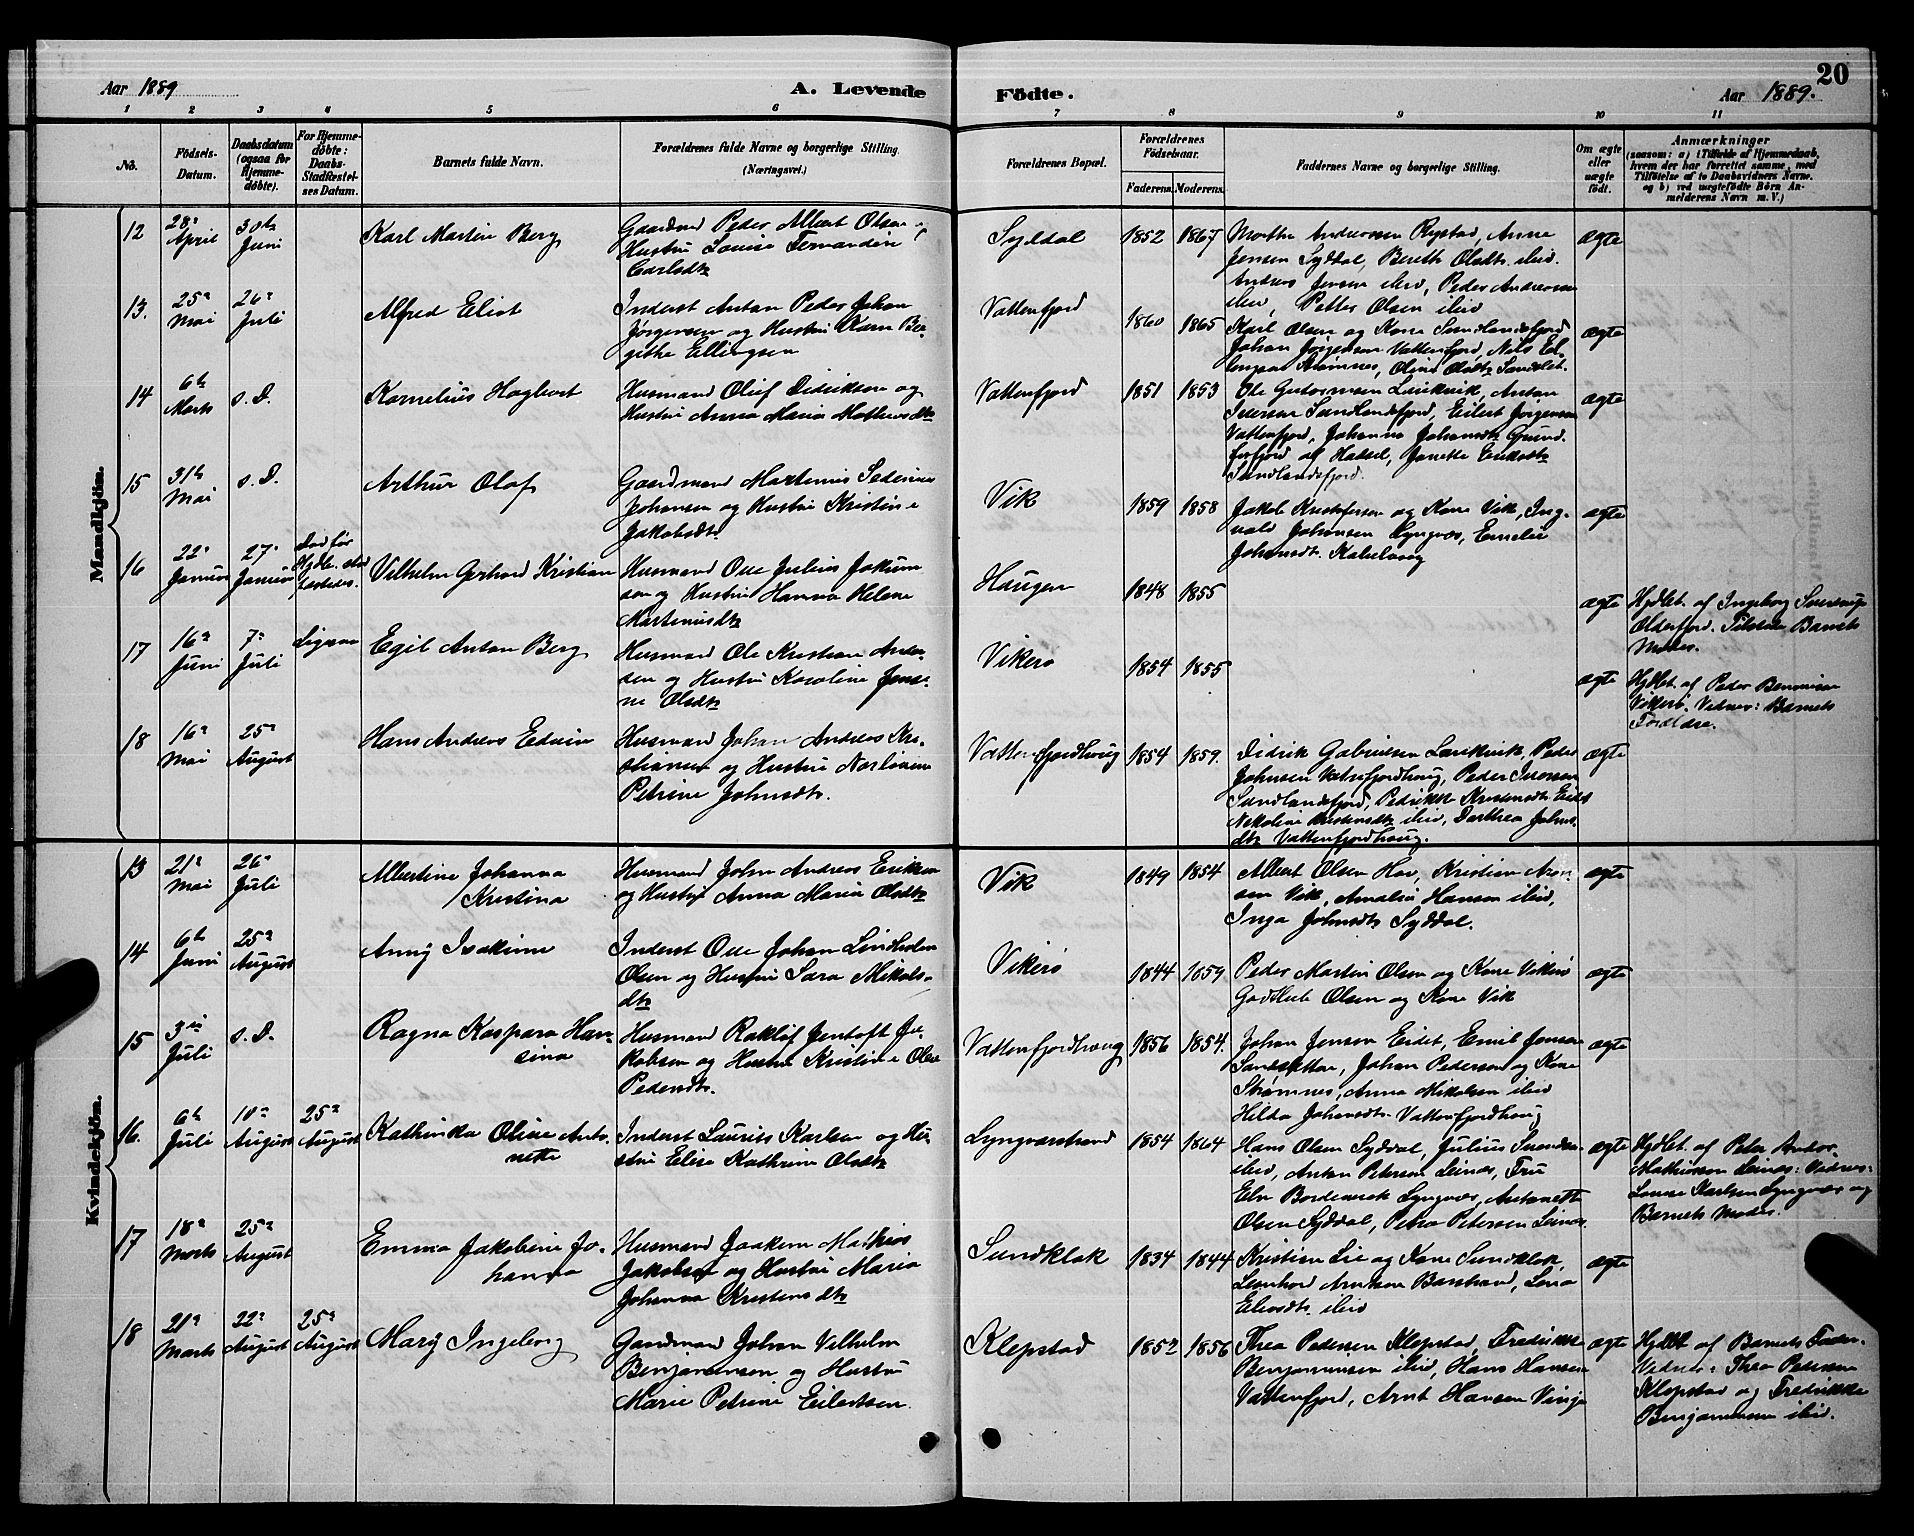 Aar 1889
A. Levende Födte.
Aar 1889.
20
1 2 3 4 5 6 7 8 9 10 11
No.
Födsels-Datum.
Daabsdatum (ogsaa for Hjemmedöbte).
For Hjemmedöbte: Daabs-Stadfæstelses Datum.
Barnets fulde Navn.
Forældrenes fulde Navne og borgerlige Stilling.
(Næringsvei.)
Forældrenes Bopæl.
Forældrenes Födselsaar.
Faderens. Moderens.
Faddernes Navne og borgerlige Stilling.
Om ægte eller uægte födt.
Anmærkninger
(saasom: a) Tilfælde af Hjemmedaab, hvem der har forrettet samme, med Tilföielse af to Daabsvidners Navne, og b) ved uægtefödte Börn Anmelderens Navn m. V.)
Mandkjön.
12 28de April 30te Juni Karl Martin Berg
Gaardmd Peder Albert Olsen
Hustru Louise
Carlsdtr
Syldal 1852 1867
Anne
Jensen Syddal, Bereth Olsdtr. ibid.
Anders Jensen ibid, Peder Andersen
ibid, Petter Olsen ibid
ægte
13. 25de Mai 26de Juli Alfred Eliot
Inderst Anton Peder Johan
Jörgensen og Hustru Karen Ber-
githe Ellingsen
Vattenfjord 1860 1865
Karl Olsen og Kone Sundlandsfjord
Johan Jörgensen Vattenfjord, Nils El-
ægte
14 6te Marts s. D. Kornelius Hagbart
Husmand Oluf Didriksen og
Hustru Anna Maria Mathisdtr
Vattenfjord 1851 1853
Ole Laukvik, Anton
Iversen Sandlandsfjord, Eilert Jörgensen
Vattenfjord, Johanna Johansdtr Grund-
forfjord af Hadsel, Janette Eriksdtr
Sandlandsfjord.
ægte
15 31te Mai s. D. Arthur Olaf
Gaardmand Martinus
Johansen og Hustru Kristine
Jakobsdtr
Vik 1859 1858
Jakob Kristofersen og Kone Vik, Ing-
vald Johansen Lyngvær, Emelie
Johansdtr. Kabelvaag
ægte
16 22de Januar 27de Januar Död för Hjdb. stad-fæstedes. Vilhelm Gerhard Kristian
Husmand Ove Julius Jokum
sen og Hustru Hanna Helene
Martinusdtr
Haugen 1848 1855
ægte
Hjdbt. af Ingeborg
Olderfjord. Tilstede Barnets
Moder.
17 16de Juni 7de Juli Egil Anton Berg
Husmand Ole Kristian Ander-
sen og Hustru Karoline Jens-
ine Olsdtr
Vikerö 1854 1855
ægte
Hjdbt. af Peder
Vikerö. Vidner: Barnets
Forældre.
18 16de Mai 25de August Hans Andreas Edvin
Husmand Johan Andreas Kri-
stiansen og Hustru
Petrine Johnsdtr.
Vattenfjordhoug 1854 1859.
Didrik Gabrielsen Laukvik, Peder
Johnsen Vattenfjordhoug, Peder Iversen
Sandlandsfjord, Pedrikke Kristensdtr. Eidet
Nikoline Kristensdtr ibid, Dorthea Johns-
dtr Vattenfjordhoug.
ægte
Kvindekjön.
13 21de Mai 26de Juli Albertine Johanna
Kristina
Husmand John Andreas Eriksen
og Hustru Anna Maria Olsdtr
Vik 1849 1854
Albert Olsen Hov, Kristian Aron-
sen Vik, Amalie Hansen ibid,
Inga Johnsdtr Syddal.
ægte
14 6te Juni 25de August Anny Isakine
Inderst Ove Johan Lindholm
Olsen og Hustru Sara Mikals-
dtr
Vikerö 1844 1859
Peder Martin Olsen og Kone Vikerö
Godtlieb Olsen og Kone Vik
ægte
15 3die Juli s. D. Ragna Kaspara Han-
sina
Husmand Jentoft Ja-
kobsen og Hustru Kristine Olse
Pedersdtr.
Vattenfjordhoug 1856 1854.
Johan Jensen Eidet, Emil Jensen
Sandsletten, Johan Pedersen og Kone
Strömnes, Anna Mikelsen ibid
Hilda Johansdtr. Vattenfjordhoug
ægte
16. 6te Juli 10de August 25de August Kathinka Oline Anto-
nette
Inderst Laurits Karlsen og Hu-
stru Elise Kathrine Olsdtr
Lyngværstrand 1854 1864
Hans Olsen Syddal, Julius
ibid, Anton Petersen Leinæs, Fru
Lyngvær, Antonette
Olsen Syddal, Petra Petersen Leinæs.
ægte
Hjdbt. af Peter Andor
Mathiassen Leinæs: Vidner:
Louise Karlsen Lyngvær og
Barnets Moder.
17 18de Marts 25de August Emma Jakobine Jo-
hanna
Husmand Joakim Mathias
Jakobsen og Hustru Maria
Johanna Kristensdtr
Sundklak 1834 1844
Kristian Lie og Kone Sundklak,
Leonhard Arntsen Barstrand, Lena
ibid
ægte
18 21de Marts 22de August 25de August Mary Ingeborg
Gaardmand Johan Vilhelm
Benjaminsen og Hustru
Marie Petrine Eilertsen.
Klepstad 1852 1856
Thea Pedersen Klepstad, Fredrikke
Benjaminsen ibid, Hans Hansen
Vattenfjord, Arnt Hansen Vinje
ægte
Hjdbt af Barnets Fader.
Vidner: Thea Pedersen
Klepstad og Fredrikke
Benjaminsen ibid.